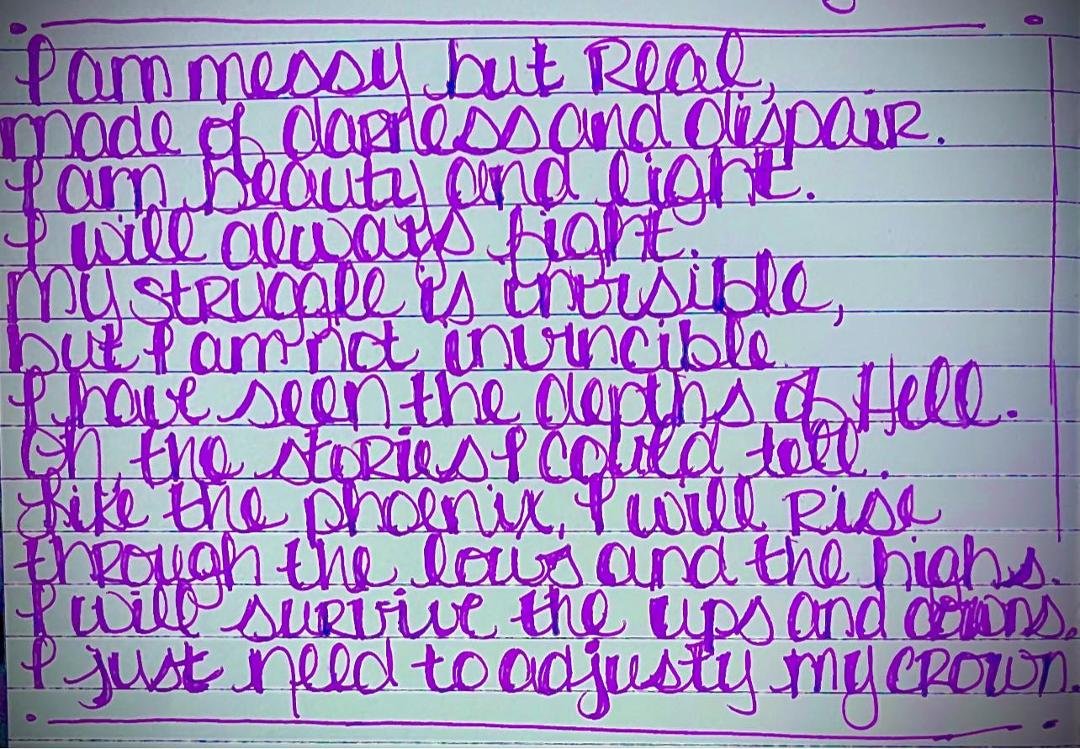 I am messy but Real,
made of darkness and dispair.
I am beauty and light.
I will always fight.
My struggle is invisible,
but I am not invincible.
I have seen the depths of Hell.
Oh, the stories I could tell.
Like the phoenix, I will Rise
through the lows and the highs.
I will survive the ups and downs.
I just need to adjusty my crown.